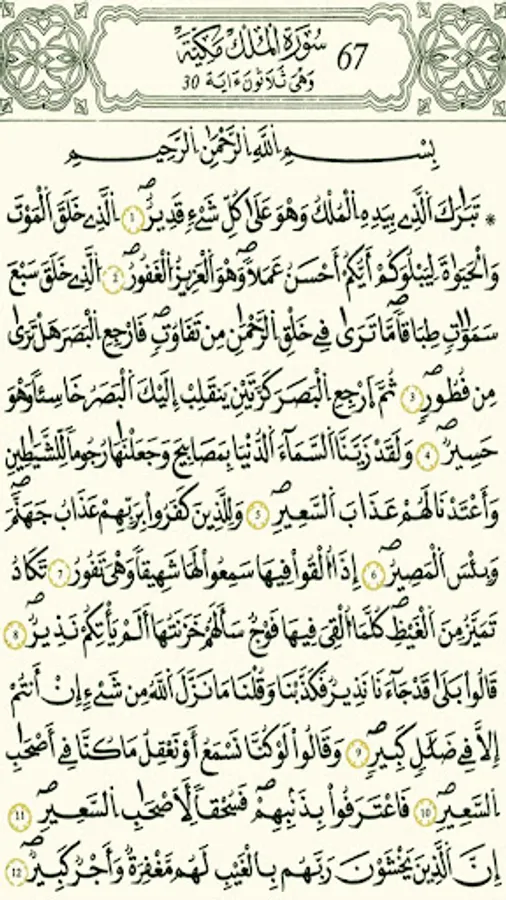 سُورَةُ الْمُلْكِ مَكِّيَّةٌ 67
وَهِيَ ثَلَاثُونَ ءَايَة 30
بِسْمِ اِللَّهِ اِلرَّحْمَٰنِ اِلرَّحِيمِ
* تَبَٰرَكَ اَلَّذِے بِيَدِهِ اِلْمُلْكُ وَهُوَ عَلَىٰ كُلِّ شَےْءٖ قَدِيرٌۖ 1 اِلَّذِے خَلَقَ اَلْمَوْتَ
وَالْحَيَوٰةَ لِيَبْلُوَكُمُۥٓ أَيُّكُمُۥٓ أَحْسَنُ عَمَلاٗۖ وَهُوَ اَلْعَزِيزُ اُلْغَفُورُۖ 2 اُلَّذِے خَلَقَ سَبْعَ
سَمَٰوَٰتٖ طِبَاقاٗۖ مَّا تَرَىٰ فِے خَلْقِ اِلرَّحْمَٰنِ مِن تَفَٰوُتٖۖ فَارْجِعِ اِلْبَصَرَ هَلْ تَرَىٰ
مِن فُطُورٖۖ 3 ثُمَّ اَرْجِعِ اِلْبَصَرَ كَرَّتَيْنِ يَنقَلِبِ اِلَيْكَ اَلْبَصَرُ خَاسِئاٗ وَهُوَ
حَسِيرٌۖ 4 وَلَقَدْ زَيَّنَّا اَلسَّمَآءَ اَلدُّنْيَا بِمَصَٰبِيحَ وَجَعَلْنَٰهَا رُجُوماٗ لِّلشَّيَٰطِينِ
وَأَعْتَدْنَا لَهُمْ عَذَابَ اَلسَّعِيرِۖ 5 وَلِلَّذِينَ كَفَرُواْ بِرَبِّهِمْ عَذَابُ جَهَنَّمَۖ
وَبِيسَ اَلْمَصِيرُۖ 6 إِذَآ أُلْقُواْ فِيهَا سَمِعُواْ لَهَا شَهِيقاٗ وَهْىَ تَفُورُ 7 تَكَادُ
تَمَيَّزُ مِنَ اَلْغَيْظِۖ كُلَّمَآ أُلْقِىَ فِيهَا فَوْجٌ سَأَلَهُمْ خَزَنَتُهَآ أَلَمْ يَأْتِكُمْ نَذِيرٌۖ 8
قَالُواْ بَلَىٰ قَدْ جَآءَنَا نَذِيرٌ فَكَذَّبْنَا وَقُلْنَا مَا نَزَّلَ اَللَّهُ مِن شَےْءٍ اِنَ اَنتُمُۥٓ
إِلاَّ فِے ضَلَٰلٖ كَبِيرٖۖ 9 وَقَالُواْ لَوْ كُنَّا نَسْمَعُ أَوْ نَعْقِلُ مَا كُنَّا فِےٓ أَصْحَٰبِ
اِلسَّعِيرِۖ 10 فَاعْتَرَفُواْ بِذَنۢبِهِمْۖ فَسُحْقاٗ لِّأَصْحَٰبِ اِلسَّعِيرِۖ 11
إِنَّ اَلَّذِينَ يَخْشَوْنَ رَبَّهُم بِالْغَيْبِ لَهُم مَّغْفِرَةٌ وَأَجْرٌ كَبِيرٌۖ 12